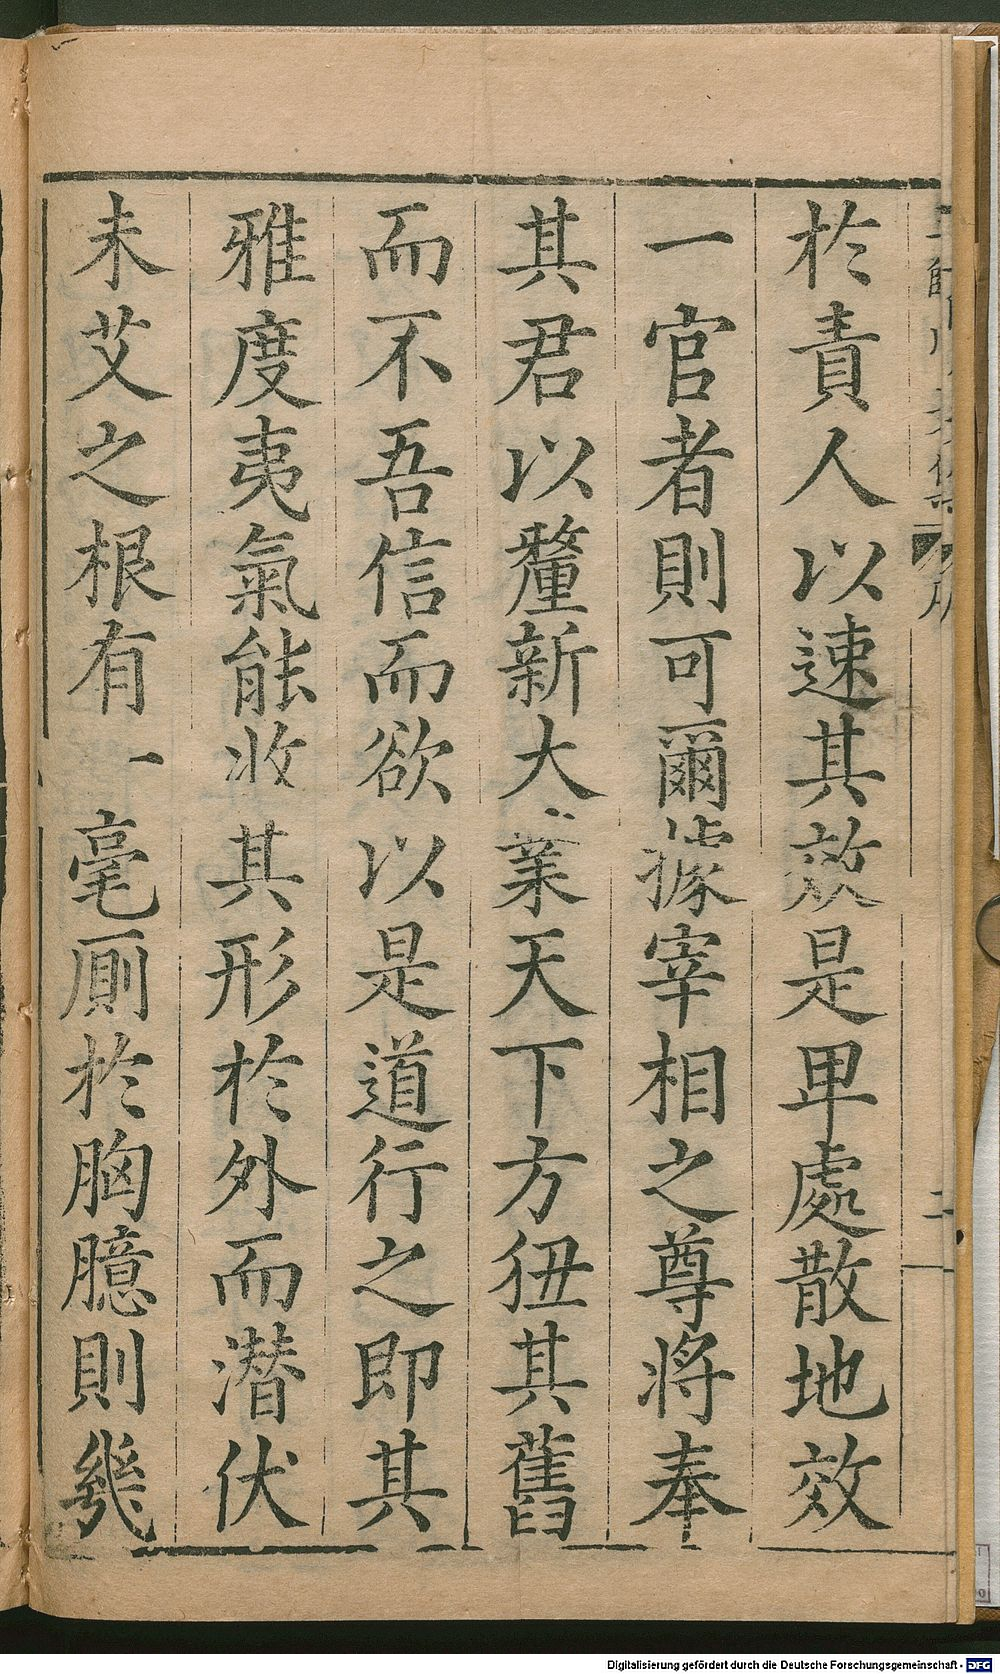 於責人以速其效是卑處散地效
一官者則可爾據宰相之尊將奉
其君以釐新大業天下方狃其舊
而不吾信而欲以是道行之即其
雅度夷氣能收其形於外而潛伏
未艾之根有一毫厠於胸臆則幾
二
Digitalisierung gefördert durch die Deutsche Forschungsgemeinschaft - DFG